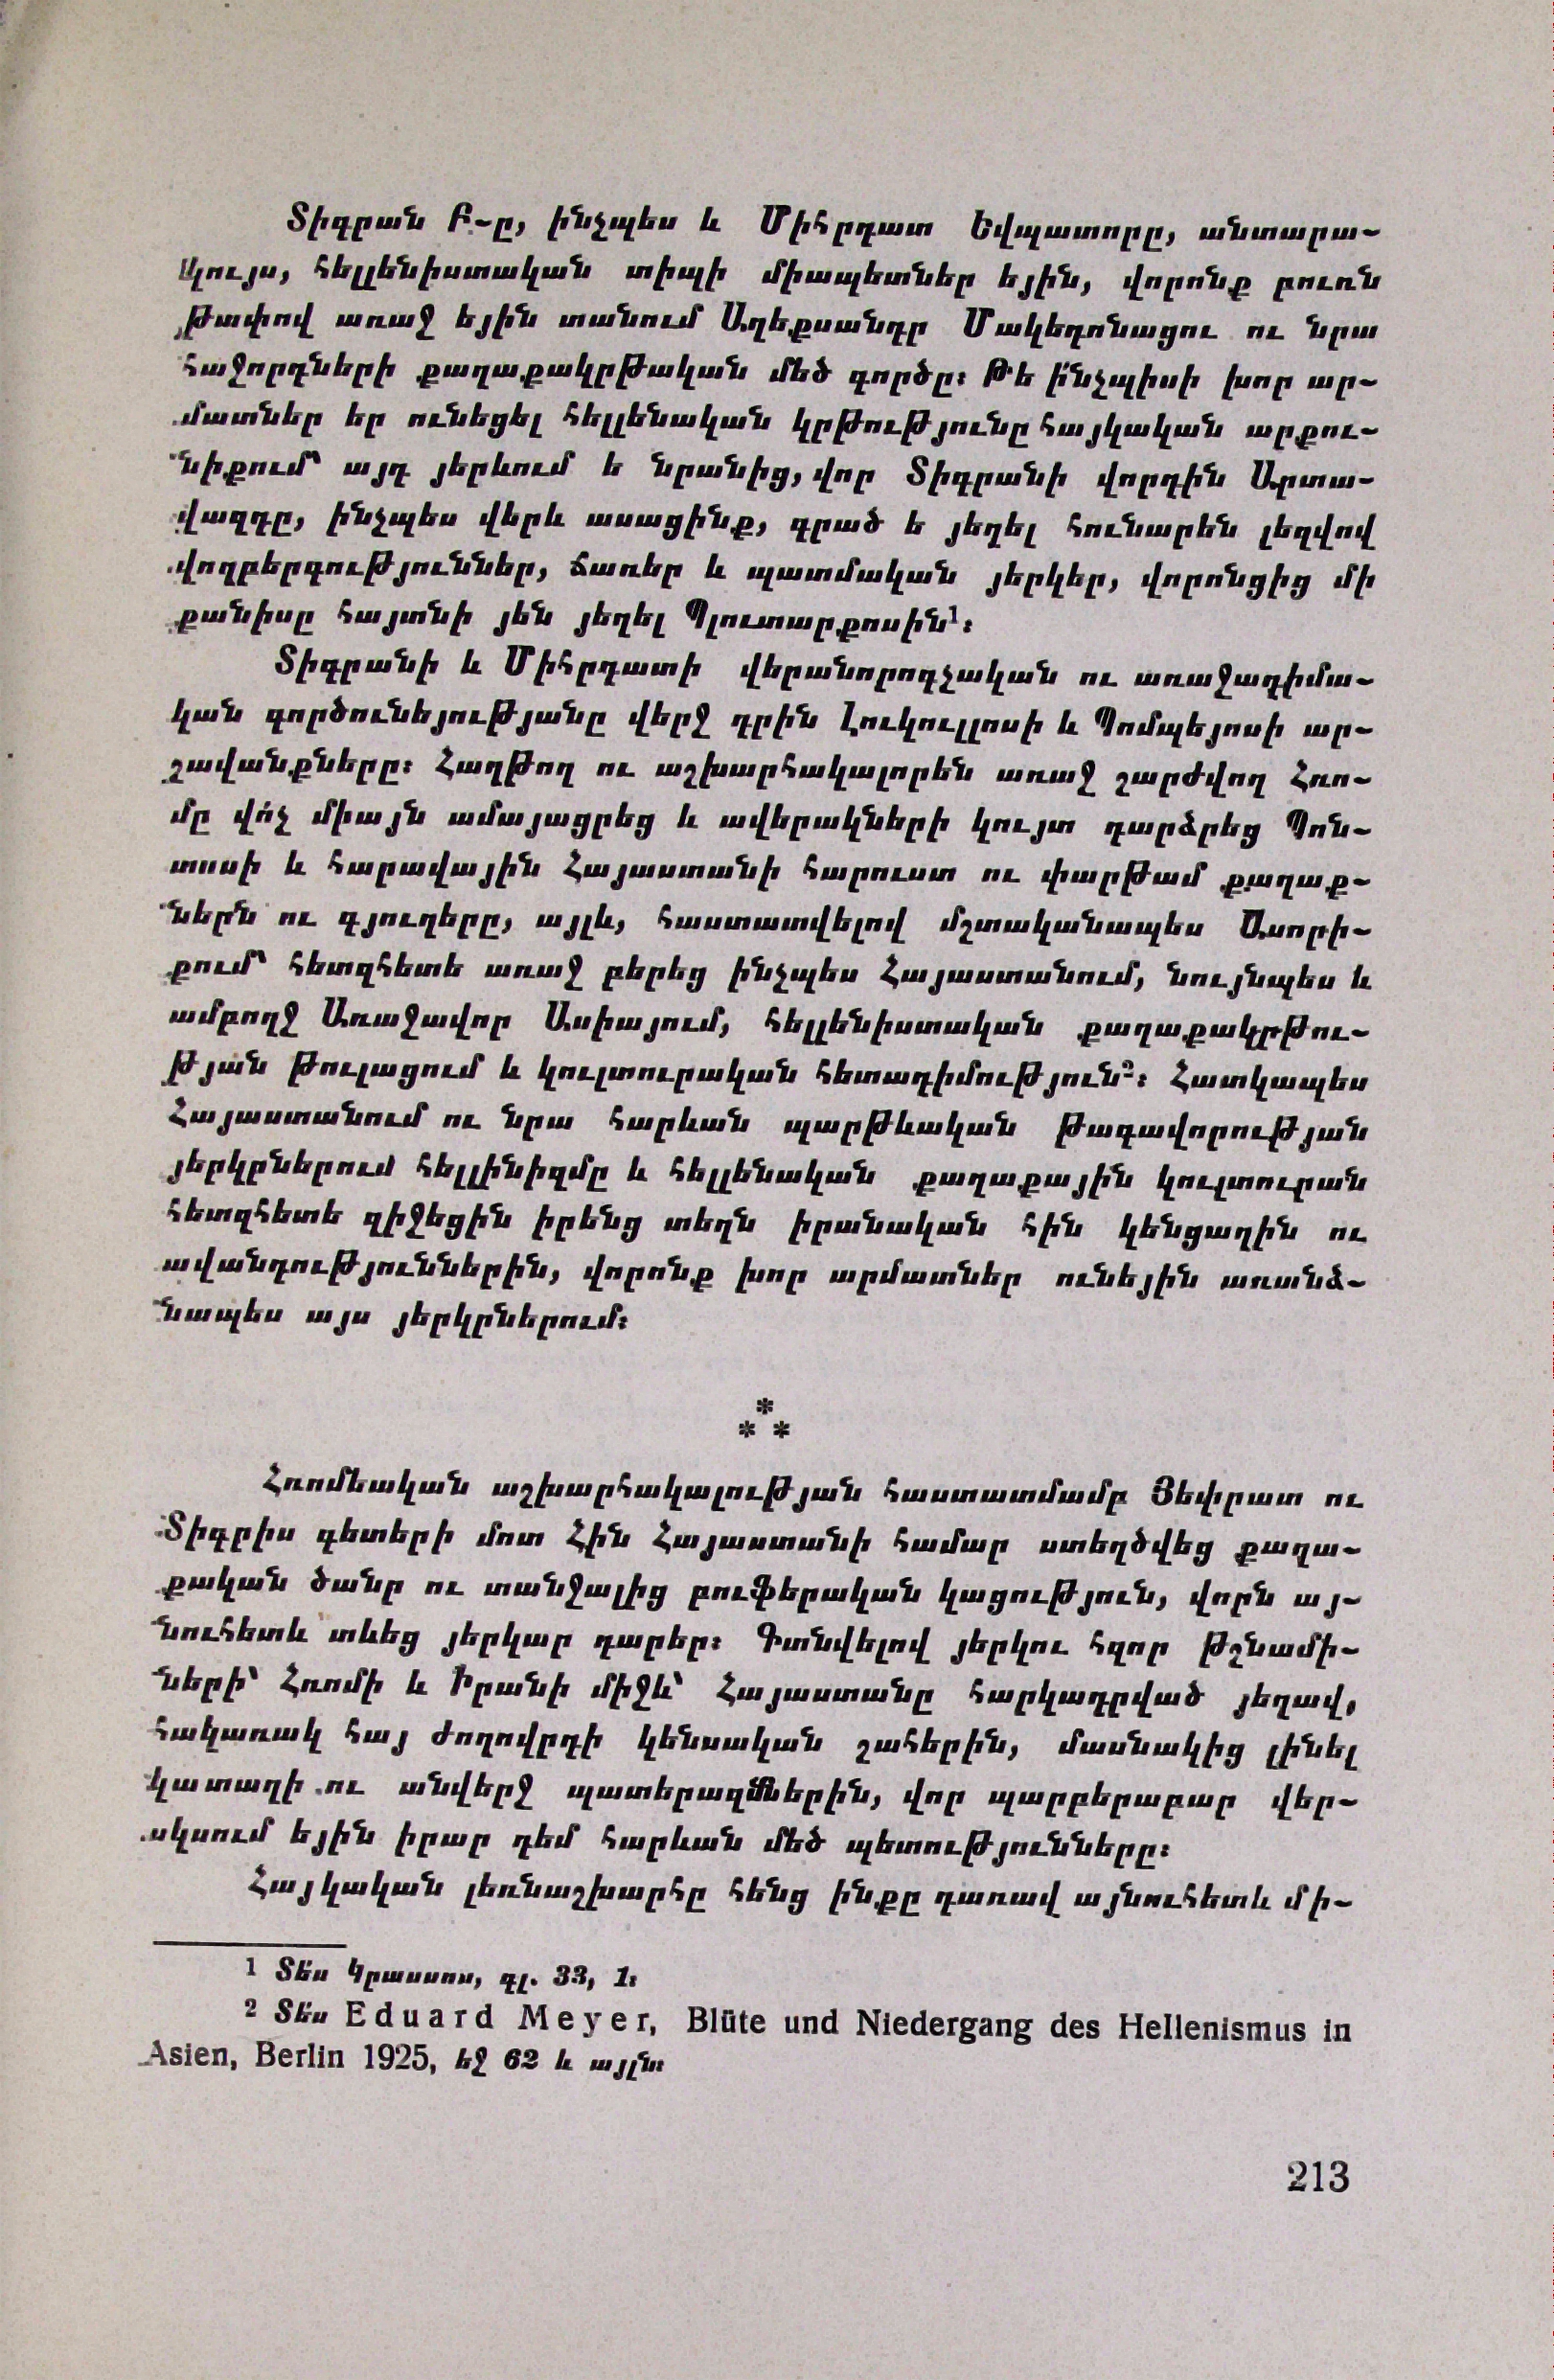 Տիգրան Բ-ը, ինչպես և Միհրդատ Եվպատորը, անտարա-
կույս, հելլենիստական տիպի միապետներ եյին, վորոնք բուռն
թափով առաջ եյին տանում Աղեքսանդր Մակեդոնացու ու նրա
հաջորդների քաղաքակրթական մեծ գործը։ Թե ի՛նչպիսի խոր ար-
մատներ եր ունեցել հելլենական կրթությունը հայկական արքու-
նիքում՝ այդ յերևում ե նրանից, վոր Տիգրանի վորդին Արտա-
վազդը, ինչպես վերև ասացինք, գրած ե յեղել հունարեն լեզվով
վողբերգություններ, ճառեր և պատմական յերկեր, վորոնցից մի
քանիսը հայտնի յեն յեղել Պլուտարքոսին¹։
Տիգրանի և Միհրդատի վերանորոգչական ու առաջադիմա-
կան գործունեյությանը վերջ դրին Լուկուլլոսի և Պոմպեյոսի ար-
շավանքները։ Հաղթող ու աշխարհակալորեն առաջ շարժվող Հռո-
մը վո՛չ միայն ամայացրեց և ավերակների կույտ դարձրեց Պոն-
տոսի և հարավային Հայաստանի հարուստ ու փարթամ քաղաք-
ներն ու գյուղերը, այլև, հաստատվելով մշտականապես Ասորի-
քում՝ հետզհետե առաջ բերեց ինչպես Հայաստանում, նույնպես և
ամբողջ Առաջավոր Ասիայում, հելլենիստական քաղաքակրթու-
թյան թուլացում և կուլտուրական հետադիմություն²։ Հատկապես
Հայաստանում ու նրա հարևան պարթևական թագավորության
յերկրներում հելլինիզմը և հելլենական քաղաքային կուլտուրան
հետզհետե զիջեցին իրենց տեղն իրանական հին կենցաղին ու
ավանդություններին, վորոնք խոր արմատներ ունեյին առանձ-
նապես այս յերկրներում։
*
* *
Հռոմեական աշխարհակալության հաստատմամբ Յեփրատ ու
Տիգրիս գետերի մոտ Հին Հայաստանի համար ստեղծվեց քաղա-
քական ծանր ու տանջալից բուֆերական կացություն, վորն այ-
նուհետև տևեց յերկար դարեր։ Գտնվելով յերկու հզոր թշնամի-
ների՝ Հռոմի և Իրանի միջև՝ Հայաստանը հարկադրված յեղավ,
հակառակ հայ ժողովրդի կենսական շահերին, մասնակից լինել
կատաղի ու անվերջ պատերազմներին, վոր պարբերաբար վեր-
սկսում եյին իրար դեմ հարևան մեծ պետությունները։
Հայկական լեռնաշխարհը հենց ինքը դառավ այնուհետև մի-
1 Տե՛ս Կրասսոս, գլ. 33, 1։
2 Տե՛ս Eduard Meyer, Blüte und Niedergang des Hellenismus in
Asien, Berlin 1925, եջ 62 և այլն։
213